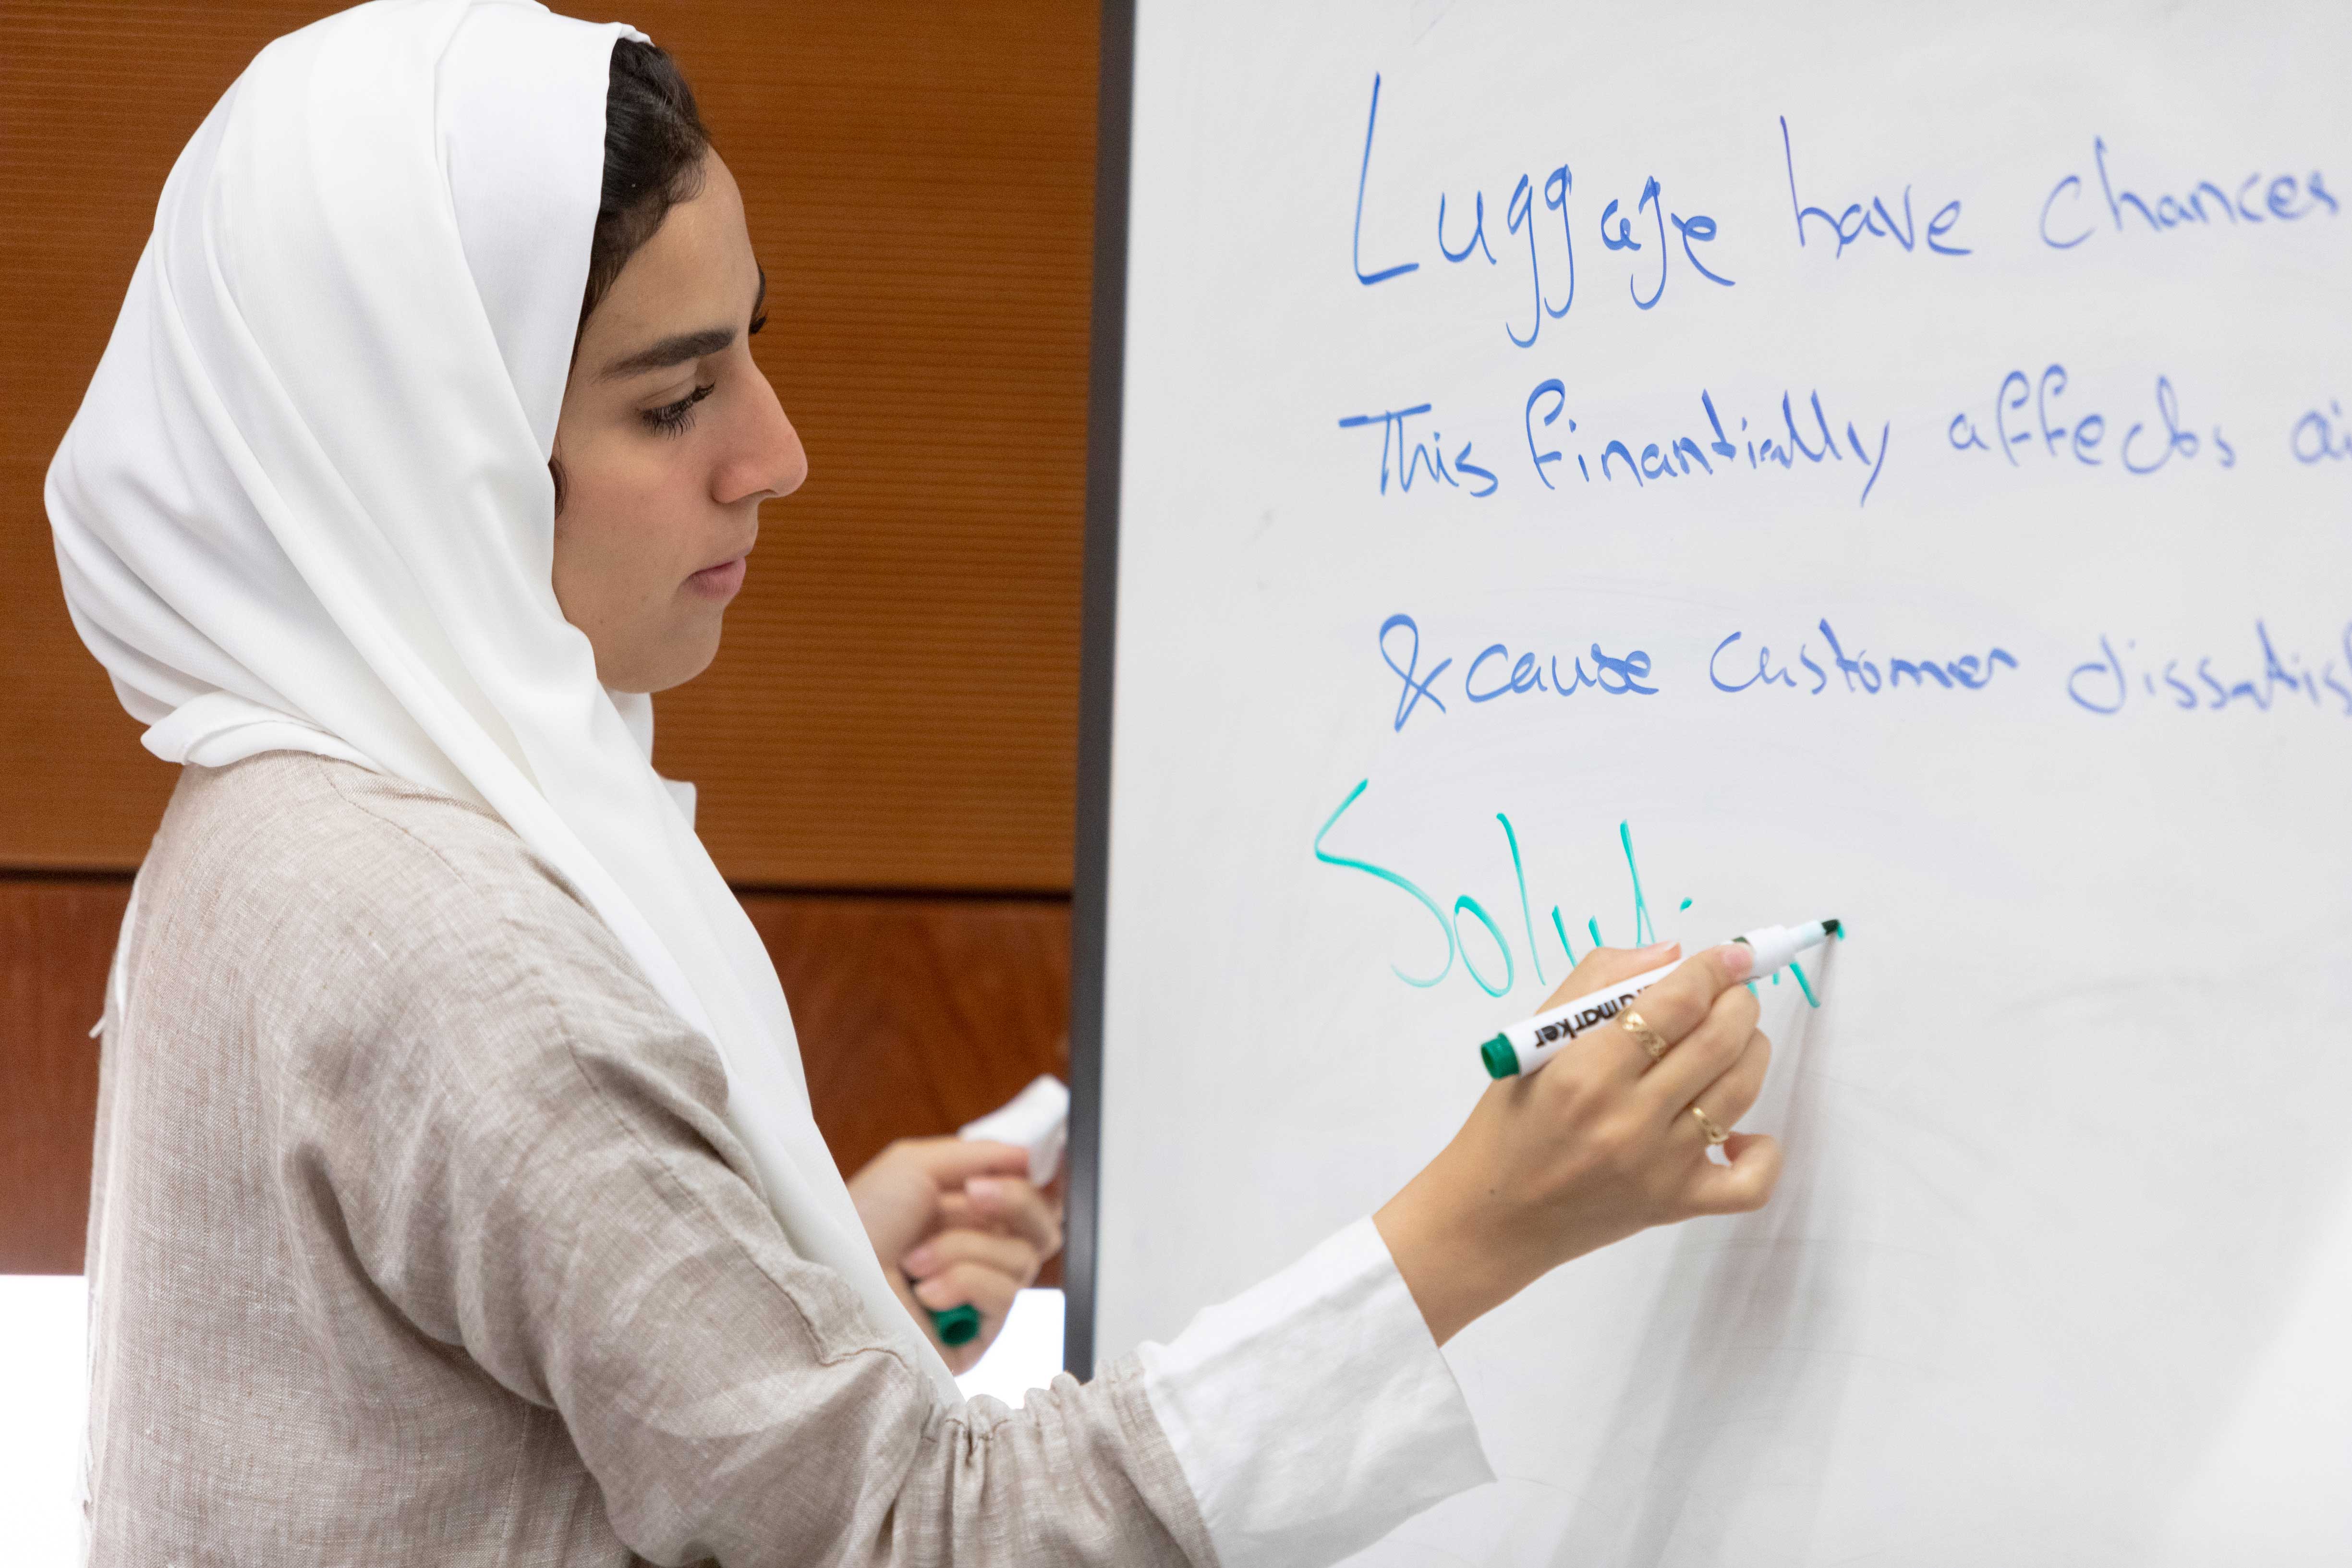 Luggage have chances
This finantially affects ai
& cause customer dissatisf
Soluti n
marker